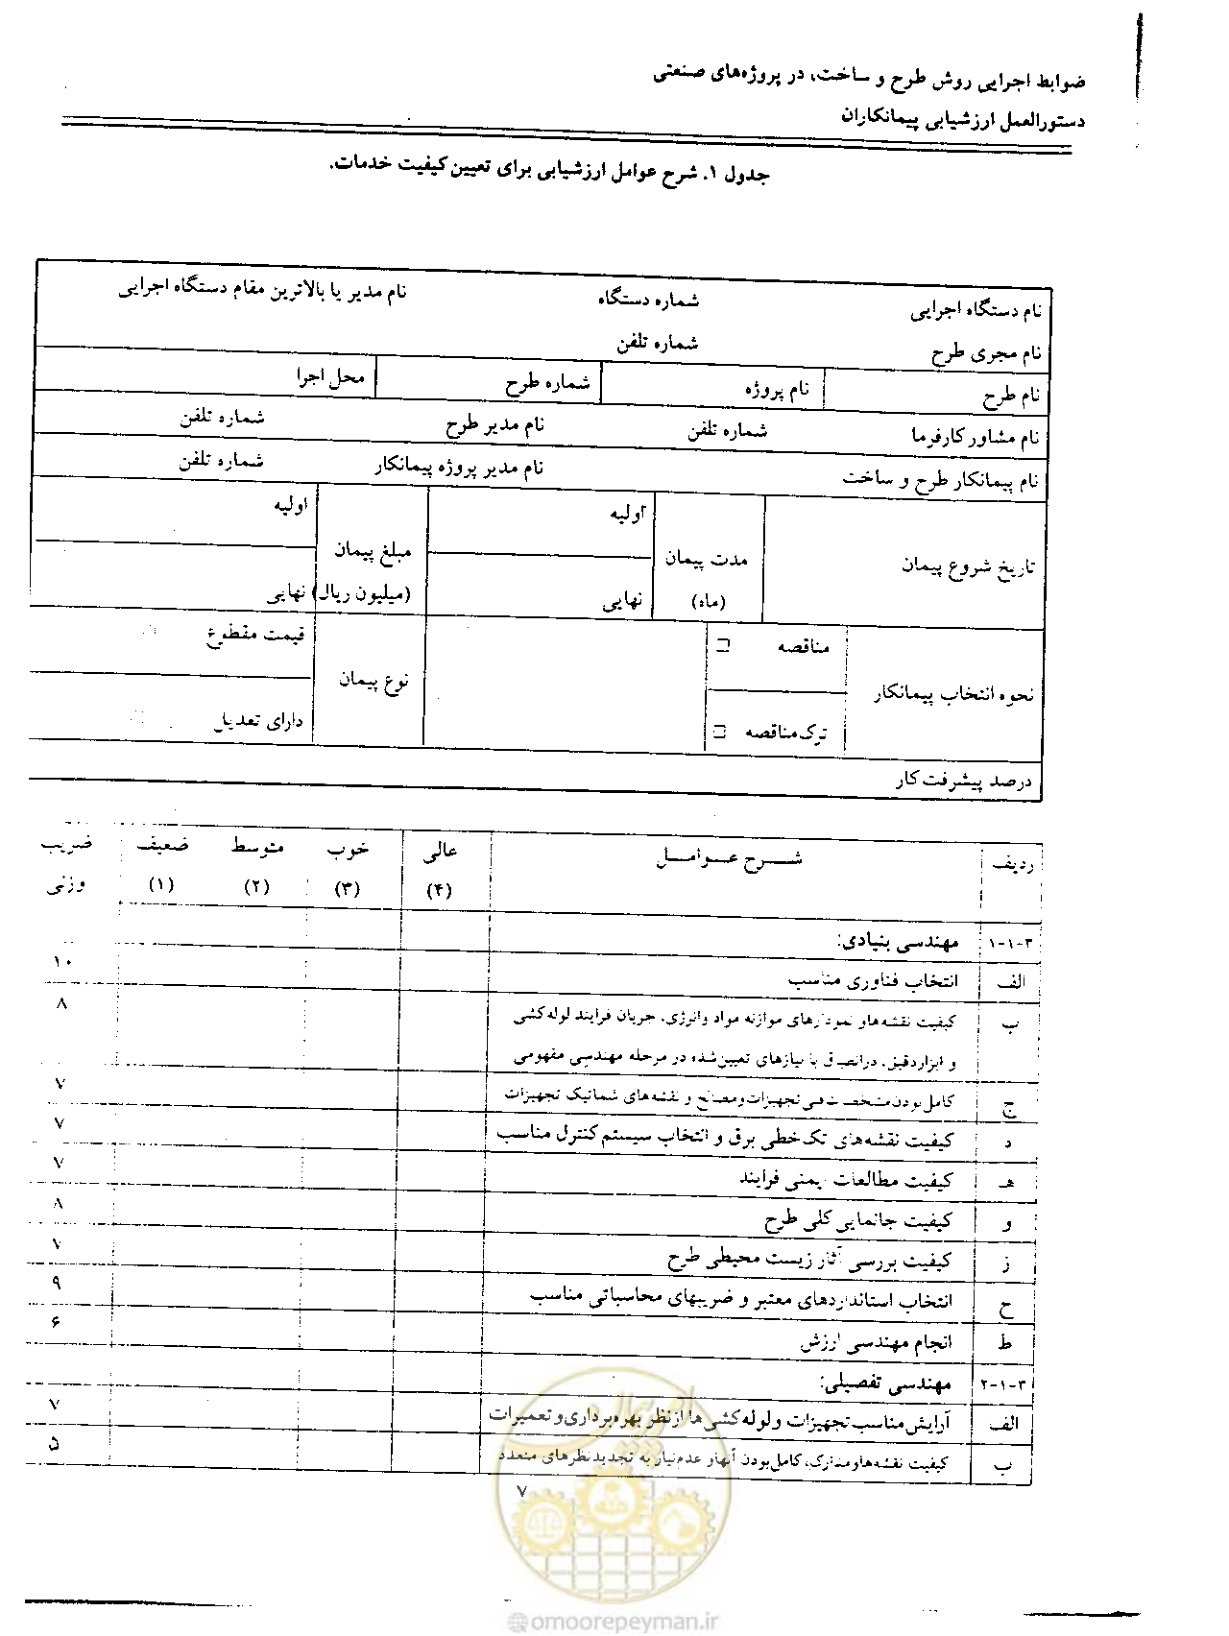 ضوابط اجرایی روش طرح و ساخت، در پروژه‌های صنعتی
دستورالعمل ارزشیابی پیمانکاران
جدول ۱. شرح عوامل ارزشیابی برای تعیین کیفیت خدمات.
نام دستگاه اجرایی شماره دستگاه نام مدیر یا بالاترین مقام دستگاه اجرایی
نام مجری طرح شماره تلفن
نام طرح نام پروژه شماره طرح محل اجرا
نام مشاور کارفرما شماره تلفن نام مدیر طرح شماره تلفن
نام پیمانکار طرح و ساخت نام مدیر پروژه پیمانکار شماره تلفن
اولیه اولیه
تاریخ شروع پیمان مدت پیمان مبلغ پیمان
(ماه) نهایی (میلیون ریال) نهایی
مناقصه □ قیمت مقطوع □
نحوه انتخاب پیمانکار نوع پیمان
ترک مناقصه □ دارای تعدیل □
درصد پیشرفت کار
ردیف شرح عوامل عالی خوب متوسط ضعیف ضریب
(۴) (۳) (۲) (۱) وزنی
۳-۱-۱ مهندسی بنیادی:
الف انتخاب فناوری مناسب ۱۰
ب کیفیت نقشه‌ها و نمودارهای موازنه مواد و انرژی، جریان فرایند لوله‌کشی ۸
و ابزار دقیق، در انطباق با نیازهای تعیین شده در مرحله مهندسی مفهومی
ج کامل بودن مشخصات فنی تجهیزات و مصالح و نقشه‌های شماتیک تجهیزات ۷
د کیفیت نقشه‌های تک خطی برق و انتخاب سیستم کنترل مناسب ۷
هـ کیفیت مطالعات ایمنی فرایند ۷
و کیفیت جانمایی کلی طرح ۸
ز کیفیت بررسی آثار زیست محیطی طرح ۷
ح انتخاب استانداردهای معتبر و ضریبهای محاسباتی مناسب ۹
ط انجام مهندسی ارزش ۶
۳-۱-۲ مهندسی تفصیلی:
الف آرایش مناسب تجهیزات و لوله‌کشی‌ها از نظر بهره‌برداری و تعمیرات ۷
ب کیفیت نقشه‌ها و مدارک، کامل بودن آنها و عدم نیاز به تجدیدنظرهای متعدد ۵
۷
امور پیمان
@omoorepeyman.ir